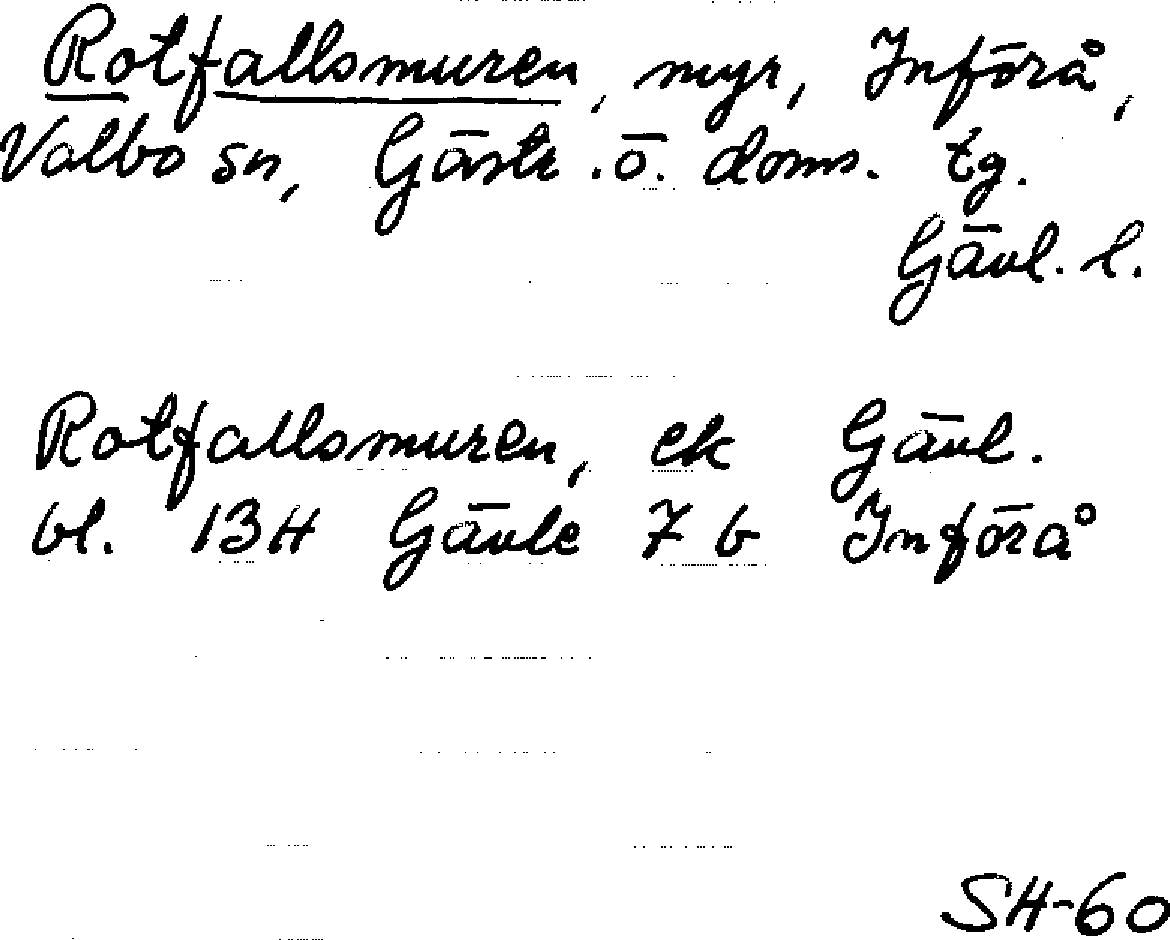 Rotfallsmuren, myr, Införå,
Valbo sn, Gästr. ö. doms. tg.
Gävl. l.
Rotfallsmuren, ek Gävl.
bl. 13H Gävle 7 b Införå
SH-60